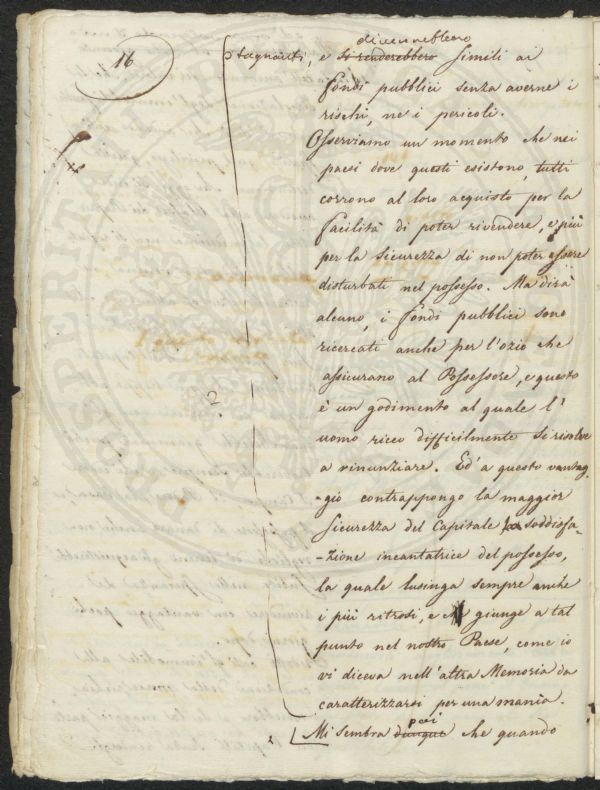 16
diverrebbero
stagnanti, e si renderebbero simili ai
fondi pubblici senza averne i
rischi, ne i pericoli.
Osserviamo un momento che nei
paesi dove questi esistono, tutti
corrono al loro acquisto per la
facilità di poter rivendere, e più
per la sicurezza di non poter essere
disturbati nel possesso. Ma dirà
alcuno, i fondi pubblici sono
ricercati anche per l'ozio che
assicurano al Possessore, e questo
è un godimento al quale l'
uomo ricco difficilmente si risolve
a rinunziare. Ed a questo vantag-
-gio contrappongo la maggior
sicurezza del Capitale la soddisfa-
-zione incantatrice del possesso,
la quale lusinga sempre anche
i più ritrosi, e giunge a tal
punto nel nostro Paese, come io
vi diceva nell'altra Memoria da
caratterizzarsi per una mania.
poi
Mi sembra dunque che quando